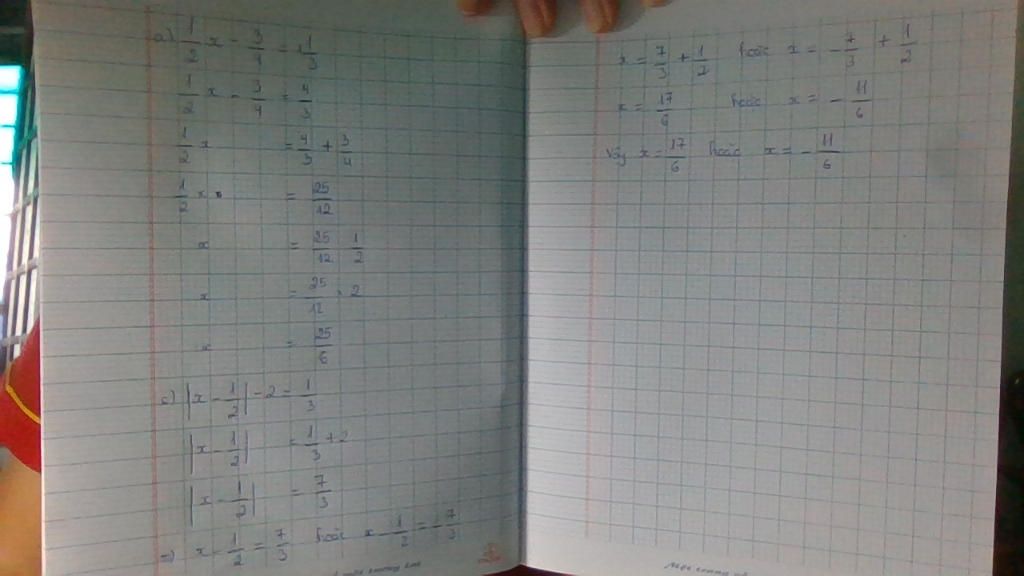 a) 1/2 x - 3/4 = 1 1/3
1/2 x - 3/4 = 4/3
1/2 x = 4/3 + 3/4
1/2 x = 25/12
x = 25/12 : 1/2
x = 25/12 . 2
x = 25/6
c) |x - 1/2| - 2 = 1/3
|x - 1/2| = 1/3 + 2
|x - 1/2| = 7/3
=) x - 1/2 = 7/3 hoặc x - 1/2 = - 7/3
x = 7/3 + 1/2 hoặc x = - 7/3 + 1/2
x = 17/6 hoặc x = - 11/6
Vậy x = 17/6 hoặc x = - 11/6